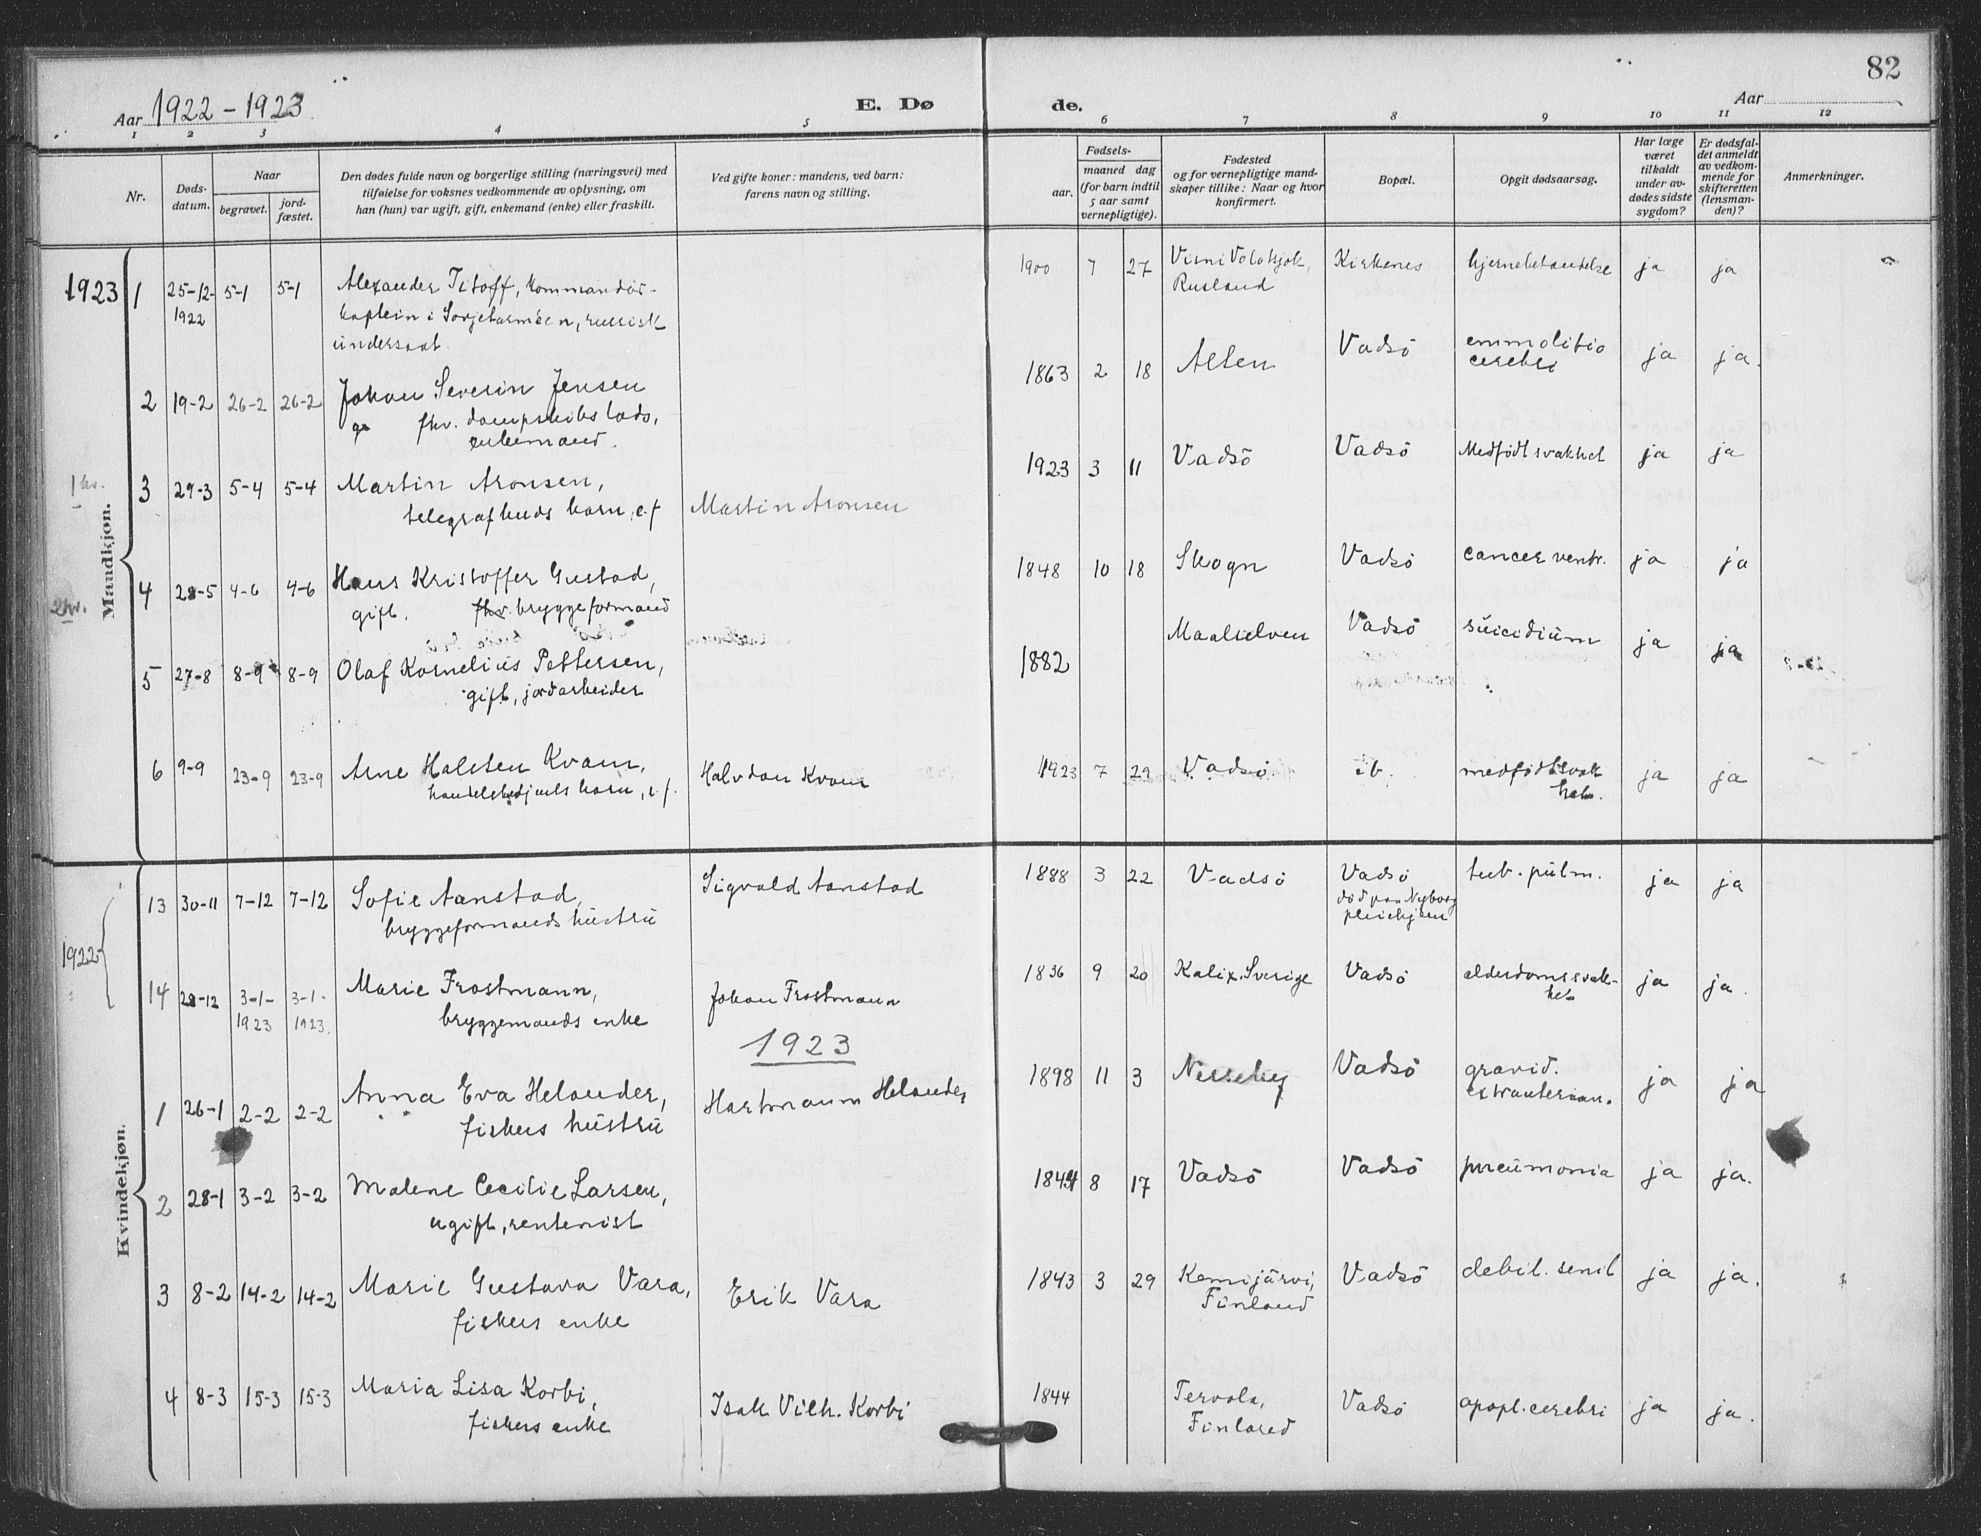 82
Aar 1922-1923
E. Dø
de.
Aar
1 2 3 4 5 6 7 8 9 10 11 12
Nr.
Døds-
datum.
Naar
begravet.
jord-
fæstet.
Den dødes fulde navn og borgerlige stilling (næringsvei) med
tilføielse for voksnes vedkommende av oplysning, om
han (hun) var ugift, gift, enkemand (enke) eller fraskilt.
Ved gifte koner: mandens, ved barn:
farens navn og stilling.
Fødsels-
aar.
maaned dag
(for barn indtil
5 aar samt
vernepligtige).
Fødested
og for vernepligtige mand-
skaper tillike: Naar og hvor
konfirmert.
Bopæl.
Opgit dødsaarsag.
Har læge
været
tilkaldt
under av-
dødes sidste
sygdom?
Er dødsfal-
det anmeldt
av vedkom-
mende for
skifteretten
(lensman-
den)?
Anmerkninger.
Mandkjøn.
1923 1 25-12- 5-1 5-1 Alexander Titoff, kommandør- 1900 7 27 Visni Volotsjok, Kirkenes hjernebetændelse ja ja
1922 kaptein i Sovjetarméen, russisk Rusland
undersaat
2 19-2 26-2 26-2 Johan Severin Jensen 1863 2 18 Alten Vadsö emmolitio ja ja.
fhv. dampskibslods, cerebri
enkemand.
1 hv. 3 29-3 5-4 5-4 Martin Aronsen, Martin Aronsen 1923 3 11 Vadsö Vadsö Medfødt svakhet ja ja
telegrafbuds barn, e.f
2 hv. 4 28-5 4-6 4-6 Hans Kristoffer Gustad, 1848 10 18 Skogn Vadsö cancer ventr. ja ja
gift. fhv. bryggeformand
5 27-8 8-9 8-9 Olaf Kornelius Pettersen, 1882 Maalselven Vadsö suicidium ja ja
gift, jordarbeider
6 9-9 23-9 23-9 Arne Halsten Kvam, Halvdan Kvam 1923 7 29 Vadsö ib. medfødt svak ja ja
handelsbetjents barn, e.f. het.
Kvindekjøn.
1922 13 30-11 7-12 7-12 Sofie Aanstad, Sigvald Aanstad 1888 3 22 Vadsö Vadsö tub. pulm. ja ja
bryggeformands hustru död paa Nyborg
pleiehjem
14 28-12 3-1- 3-1- Marie Frostmann, Johan Frostmann 1836 9 20 Kalix. Sverige Vadsö alderdomssvak- ja ja.
1923 1923. bryggemands enke het
1923
1 26-1 2-2 2-2 Anna Eva Helander, Hartmann Helander 1898 11 3 Nesseby Vadsö gravid. ja ja
fiskers hustru extrauterian.
2 28-1 3-2 3-2 Malene Cecilie Larsen, 1844 8 17 Vadsö Vadsö pneumonia ja ja.
ugift, rentenist
3 8-2 14-2 14-2 Marie Gustava Vara, Erik Vara 1843 3 29 Kemijärvi, Vadsö debil. senil ja ja.
fiskers enke Finland
4 8-3 15-3 15-3 Maria Lisa Korbi, Isak Vilh. Korbi 1844 Tervola, Vadsö apopl. cerebri ja ja.
fiskers enke Finland